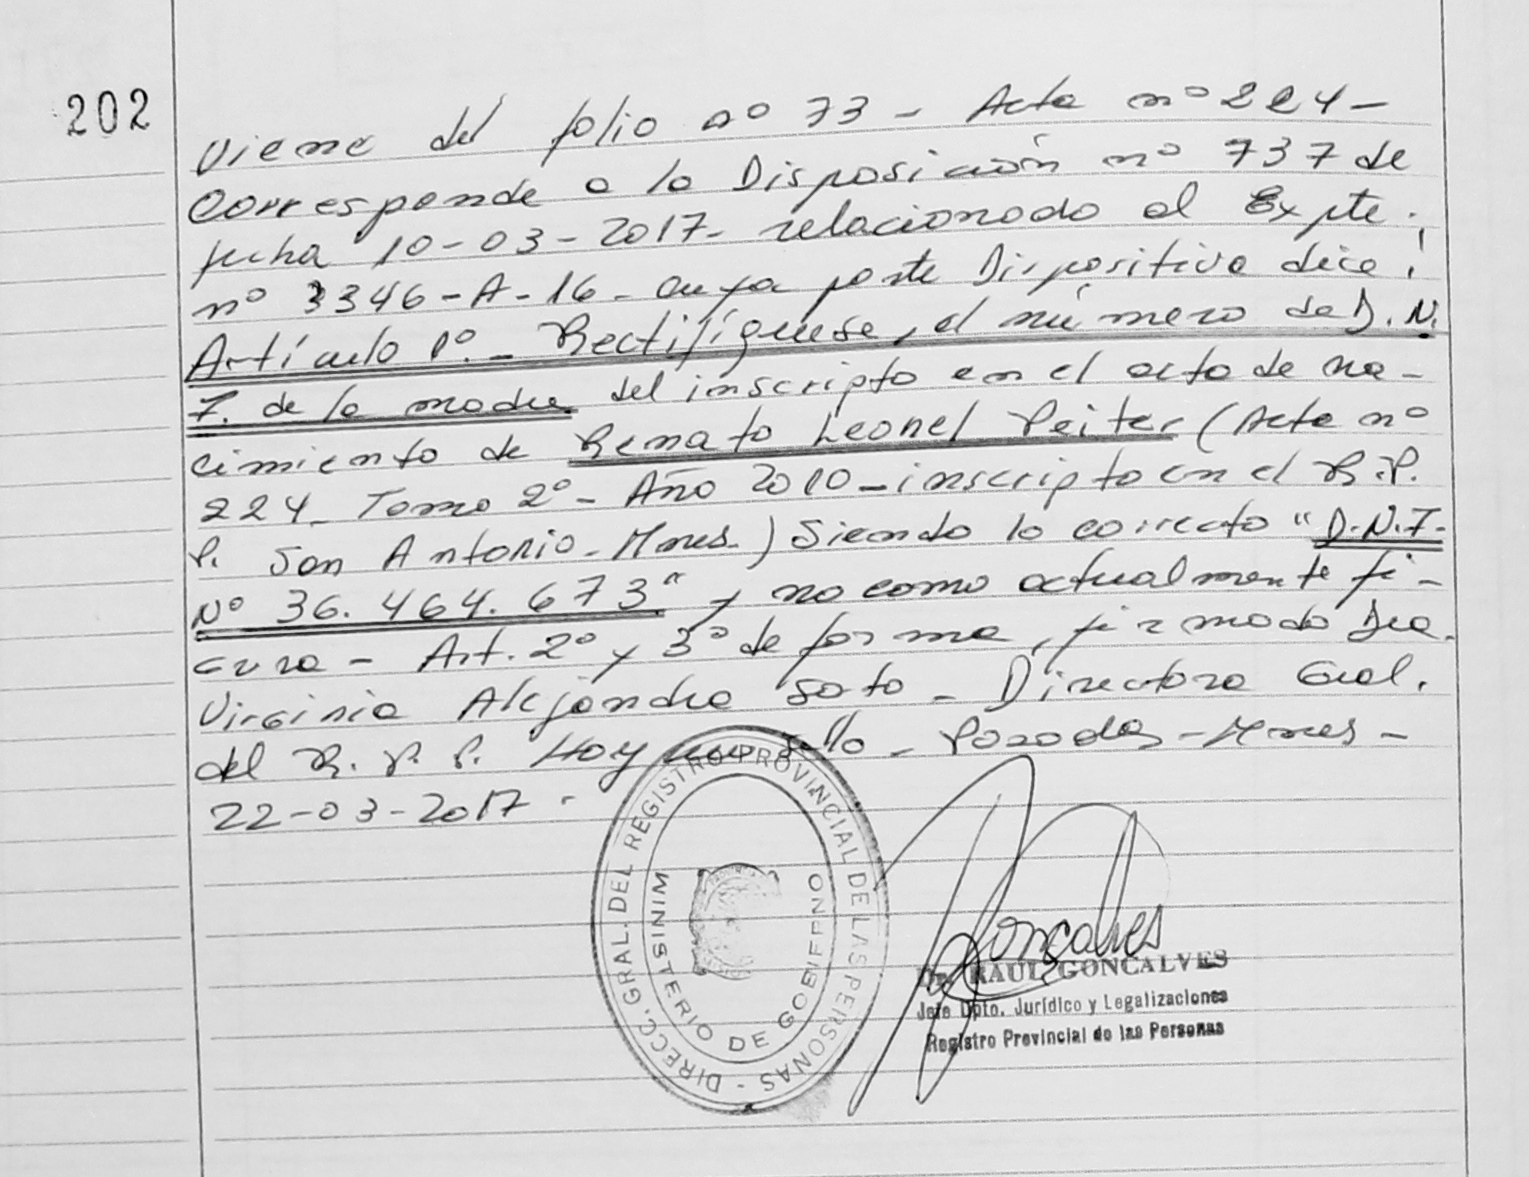 202
Viene del folio nº 73 - Acta nº 224 -
Corresponde a la Disposición nº 737 de
fecha 10-03-2017- relacionado al Expte.
nº 3346-A-16- cuya parte Dispositiva dice:
Artículo 1º.- Rectifíquese, el número de D.N.
I. de la madre del inscripto en el acta de na-
cimiento de Renato Leonel Peiter (Acta nº
224- Tomo 2º- Año 2010-inscripto en el R.P.
P. San Antonio-Mnes.) Siendo lo correcto "D.N.I-
Nº 36.464.673" y no como actualmente fi-
gura - Art. 2º y 3º de forma, firmado Dra.
Virginia Alejandra Soto - Directora Gral.
del R.P.P. Hay un Sello - Posadas-Mnes-
22-03-2017.
DIRECC. GRAL. DEL REGISTRO PROVINCIAL DE LAS PERSONAS -
MINISTERIO DE GOBIERNO
Gonçalves
Dr. RAÚL GONCALVES
Jefe Dpto. Jurídico y Legalizaciones
Registro Provincial de las Personas